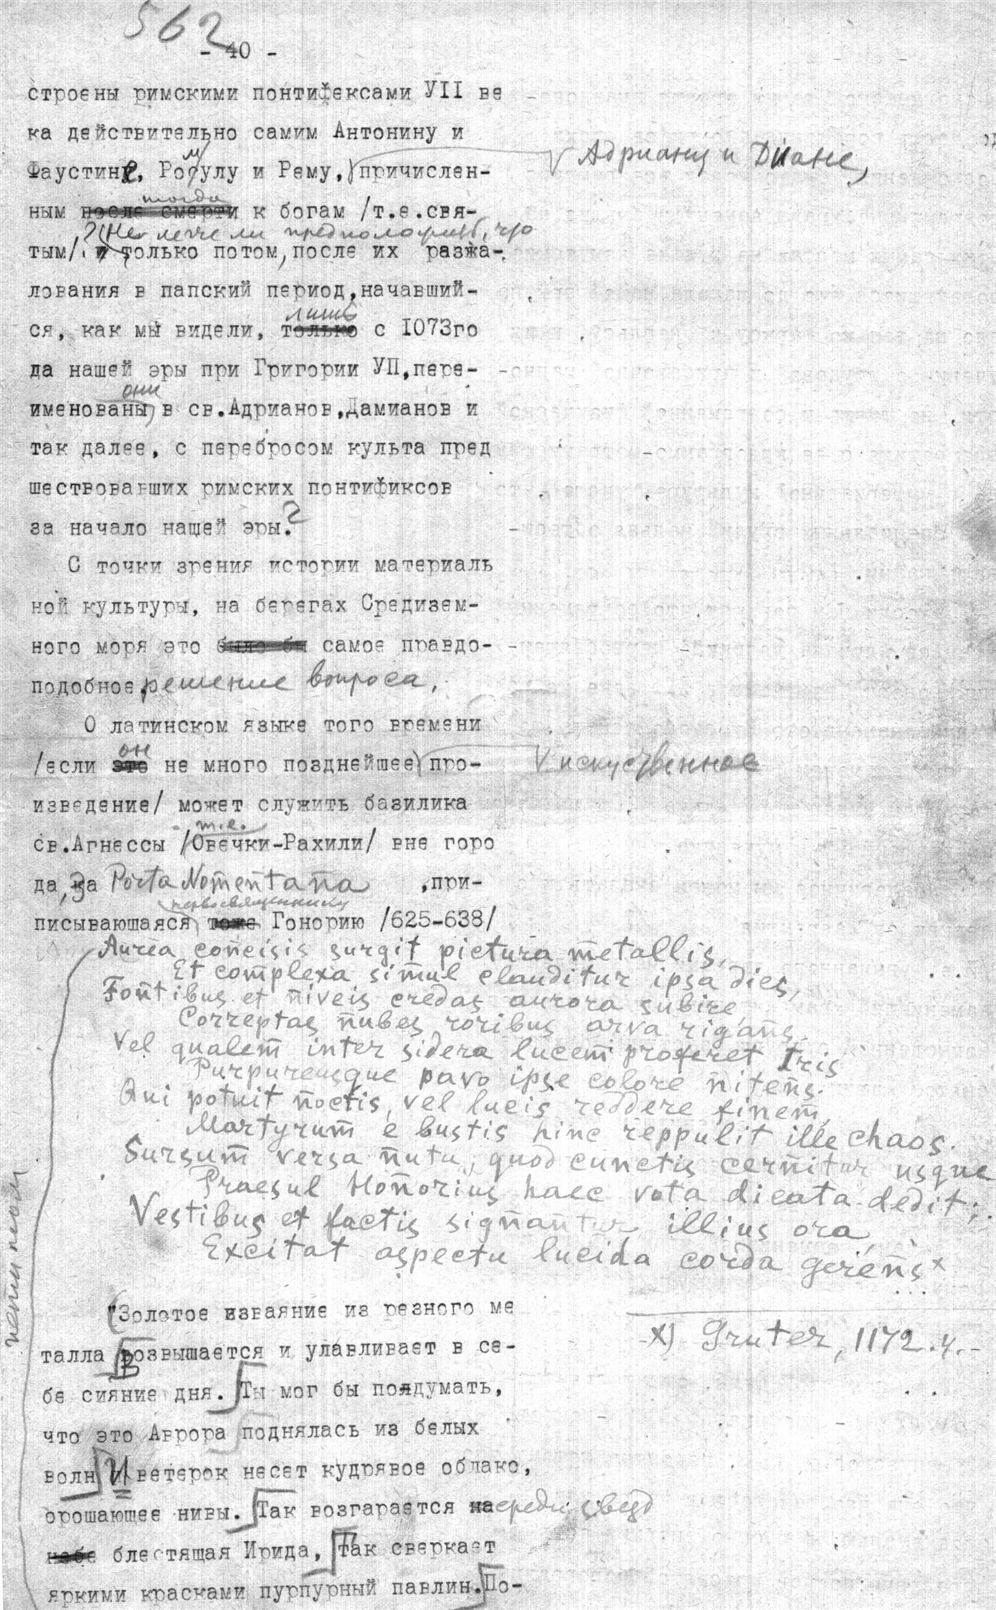 562
- 40 -
строены римскими понтифексами УІІ ве
ка действительно самим Антонину и
Фаустине, Ромулу и Рему, причислен- Адриану и Диане,
тогда
ным после смерти к богам /т.е.свя-
? (Не легче ли предположить, что
тым/, и только потом, после их разжа-
лования в папский период, начавший-
лишь
ся, как мы видели, только с 1073го
да нашей эры при Григории УП, пере-
они
именованы в св.Адрианов, Дамианов и
так далее, с перебросом культа пред
шествовавших римских понтификсов
за начало нашей эры?
С точки зрения истории материаль
ной культуры, на берегах Средизем-
ного моря это было бы самое правдо-
подобное решение вопроса.
О латинском языке того времени
он
/если это не много позднейшее про- искуственное
изведение/ может служить базилика
т.е.
св.Агнессы /Овечки-Рахили/ вне горо
да, за Porta Nomentana , при-
первосвященнику
писывающаяся тоже Гонорию /625-638/
Aurea concisis surgit pictura metallis,
Et complexa simul clauditur ipsa dies,
Fontibus et niveis credas aurora subire
Correptas nubes roribus arva rigans.
Vel qualem inter sidera lucem proferet Iris
Purpureusque pavo ipse colore nitens.
Qui potuit noctis, vel lucis reddere finem,
Martyrum e bustis hinc reppulit ille chaos.
Sursum versa nutu, quod cunctis cernitur usque
Praesul Honorius haec vota dicata dedit;
Vestibus et factis signantur illius ora,
Excitat aspectu lucida corda gerens x
"Золотое изваяние из резного ме
x) Gruter, 1172.4.-
талла возвышается и улавливает в се-
бе сияние дня. Ты мог бы подумать,
что это Аврора поднялась из белых
волн И ветерок несет кудрявое облако,
орошающее нивы. Так возгарается на среди звезд
небе блестящая Ирида, Так сверкает
яркими красками пурпурный павлин. По-